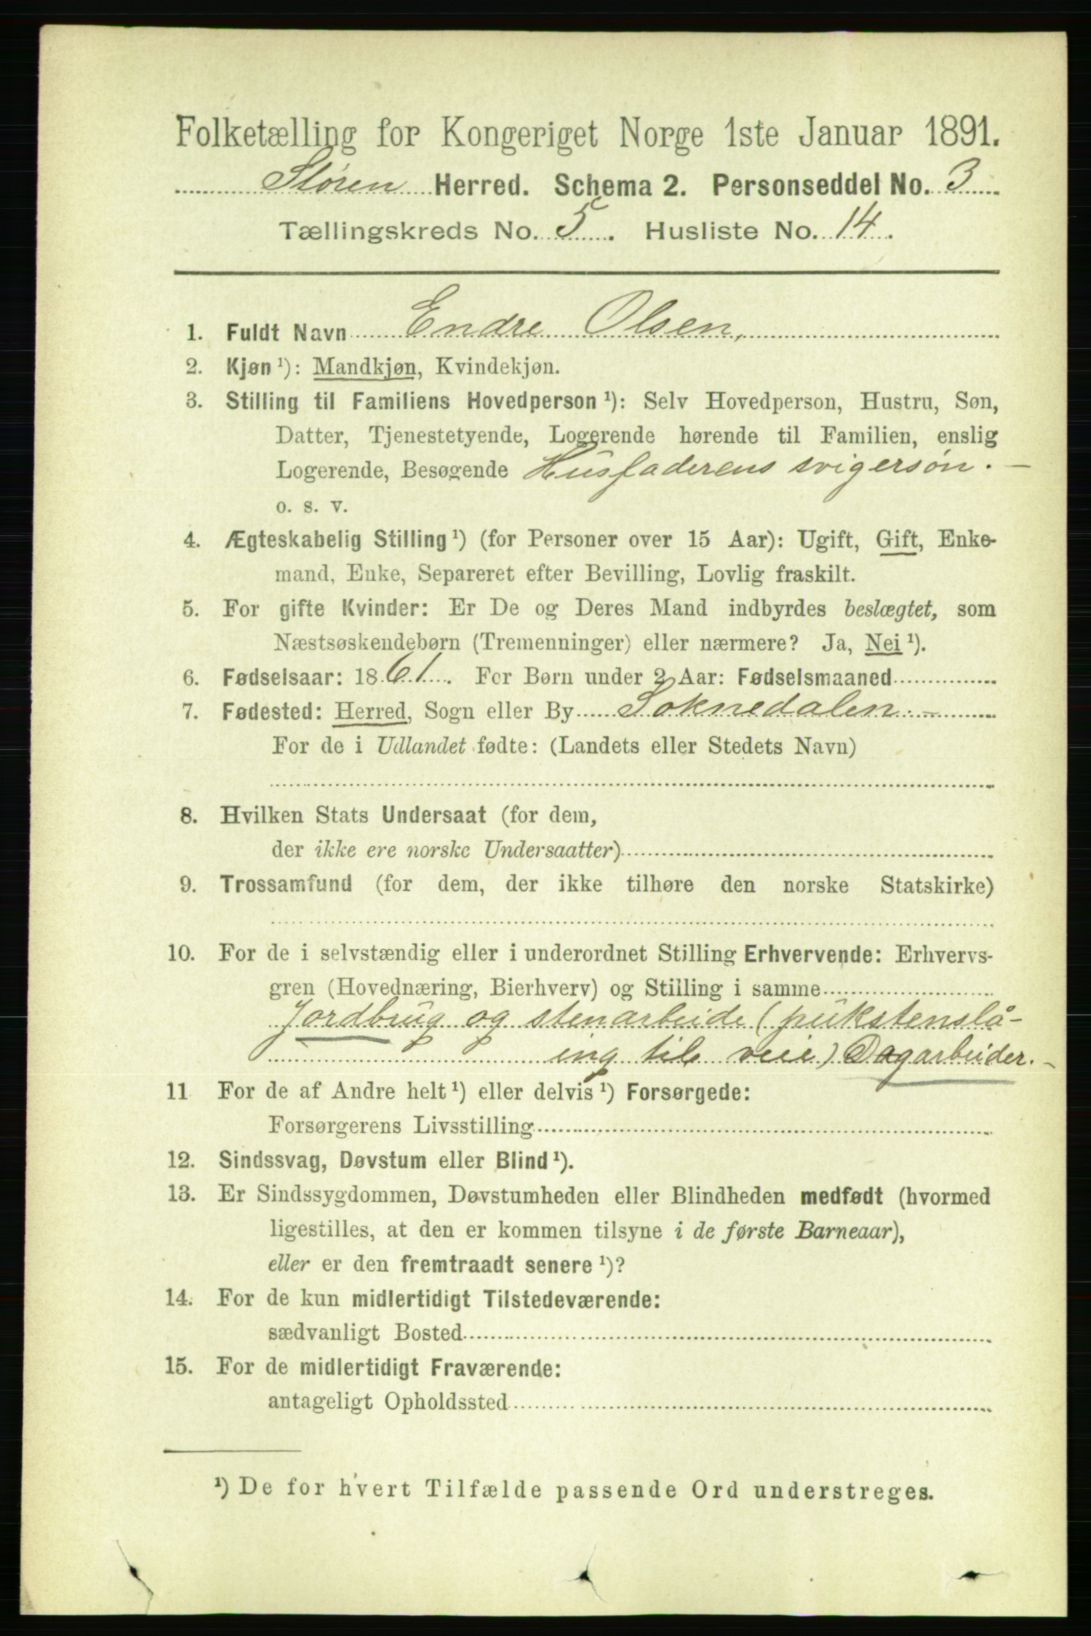 Folketælling for Kongeriget Norge 1ste Januar 1891.
Støren Herred. Schema 2. Personseddel No. 3
Tællingskreds No. 5. Husliste No. 14.
1. Fuldt Navn Endre Olsen,
2. Kjøn ¹): Mandkjøn, Kvindekjøn.
3. Stilling til Familiens Hovedperson ¹): Selv Hovedperson, Hustru, Søn,
Datter, Tjenestetyende, Logerende hørende til Familien, enslig
Logerende, Besøgende Husfaderens svigersøn. —
o. s. v.
4. Ægteskabelig Stilling ¹) (for Personer over 15 Aar): Ugift, Gift, Enke-
mand, Enke, Separeret efter Bevilling, Lovlig fraskilt.
5. For gifte Kvinder: Er De og Deres Mand indbyrdes beslægtet, som
Næstsøskendebørn (Tremenninger) eller nærmere? Ja, Nei ¹).
6. Fødselsaar: 1861. For Børn under 2 Aar: Fødselsmaaned
7. Fødested: Herred, Sogn eller By Soknedalen. —
For de i Udlandet fødte: (Landets eller Stedets Navn)
8. Hvilken Stats Undersaat (for dem,
der ikke ere norske Undersaatter)
9. Trossamfund (for dem, der ikke tilhøre den norske Statskirke)
10. For de i selvstændig eller i underordnet Stilling Erhvervende: Erhvervs-
gren (Hovednæring, Bierhverv) og Stilling i samme
Jordbrug og stenarbeide (pukstenslå-
ing til veie) Dagarbeider. —
11 For de af Andre helt ¹) eller delvis ¹) Forsørgede:
Forsørgerens Livsstilling
12. Sindssvag, Døvstum eller Blind ¹).
13. Er Sindssygdommen, Døvstumheden eller Blindheden medfødt (hvormed
ligestilles, at den er kommen tilsyne i de første Barneaar),
eller er den fremtraadt senere ¹)?
14. For de kun midlertidigt Tilstedeværende:
sædvanligt Bosted
15. For de midlertidigt Fraværende:
antageligt Opholdssted
¹) De for hvert Tilfælde passende Ord understreges.